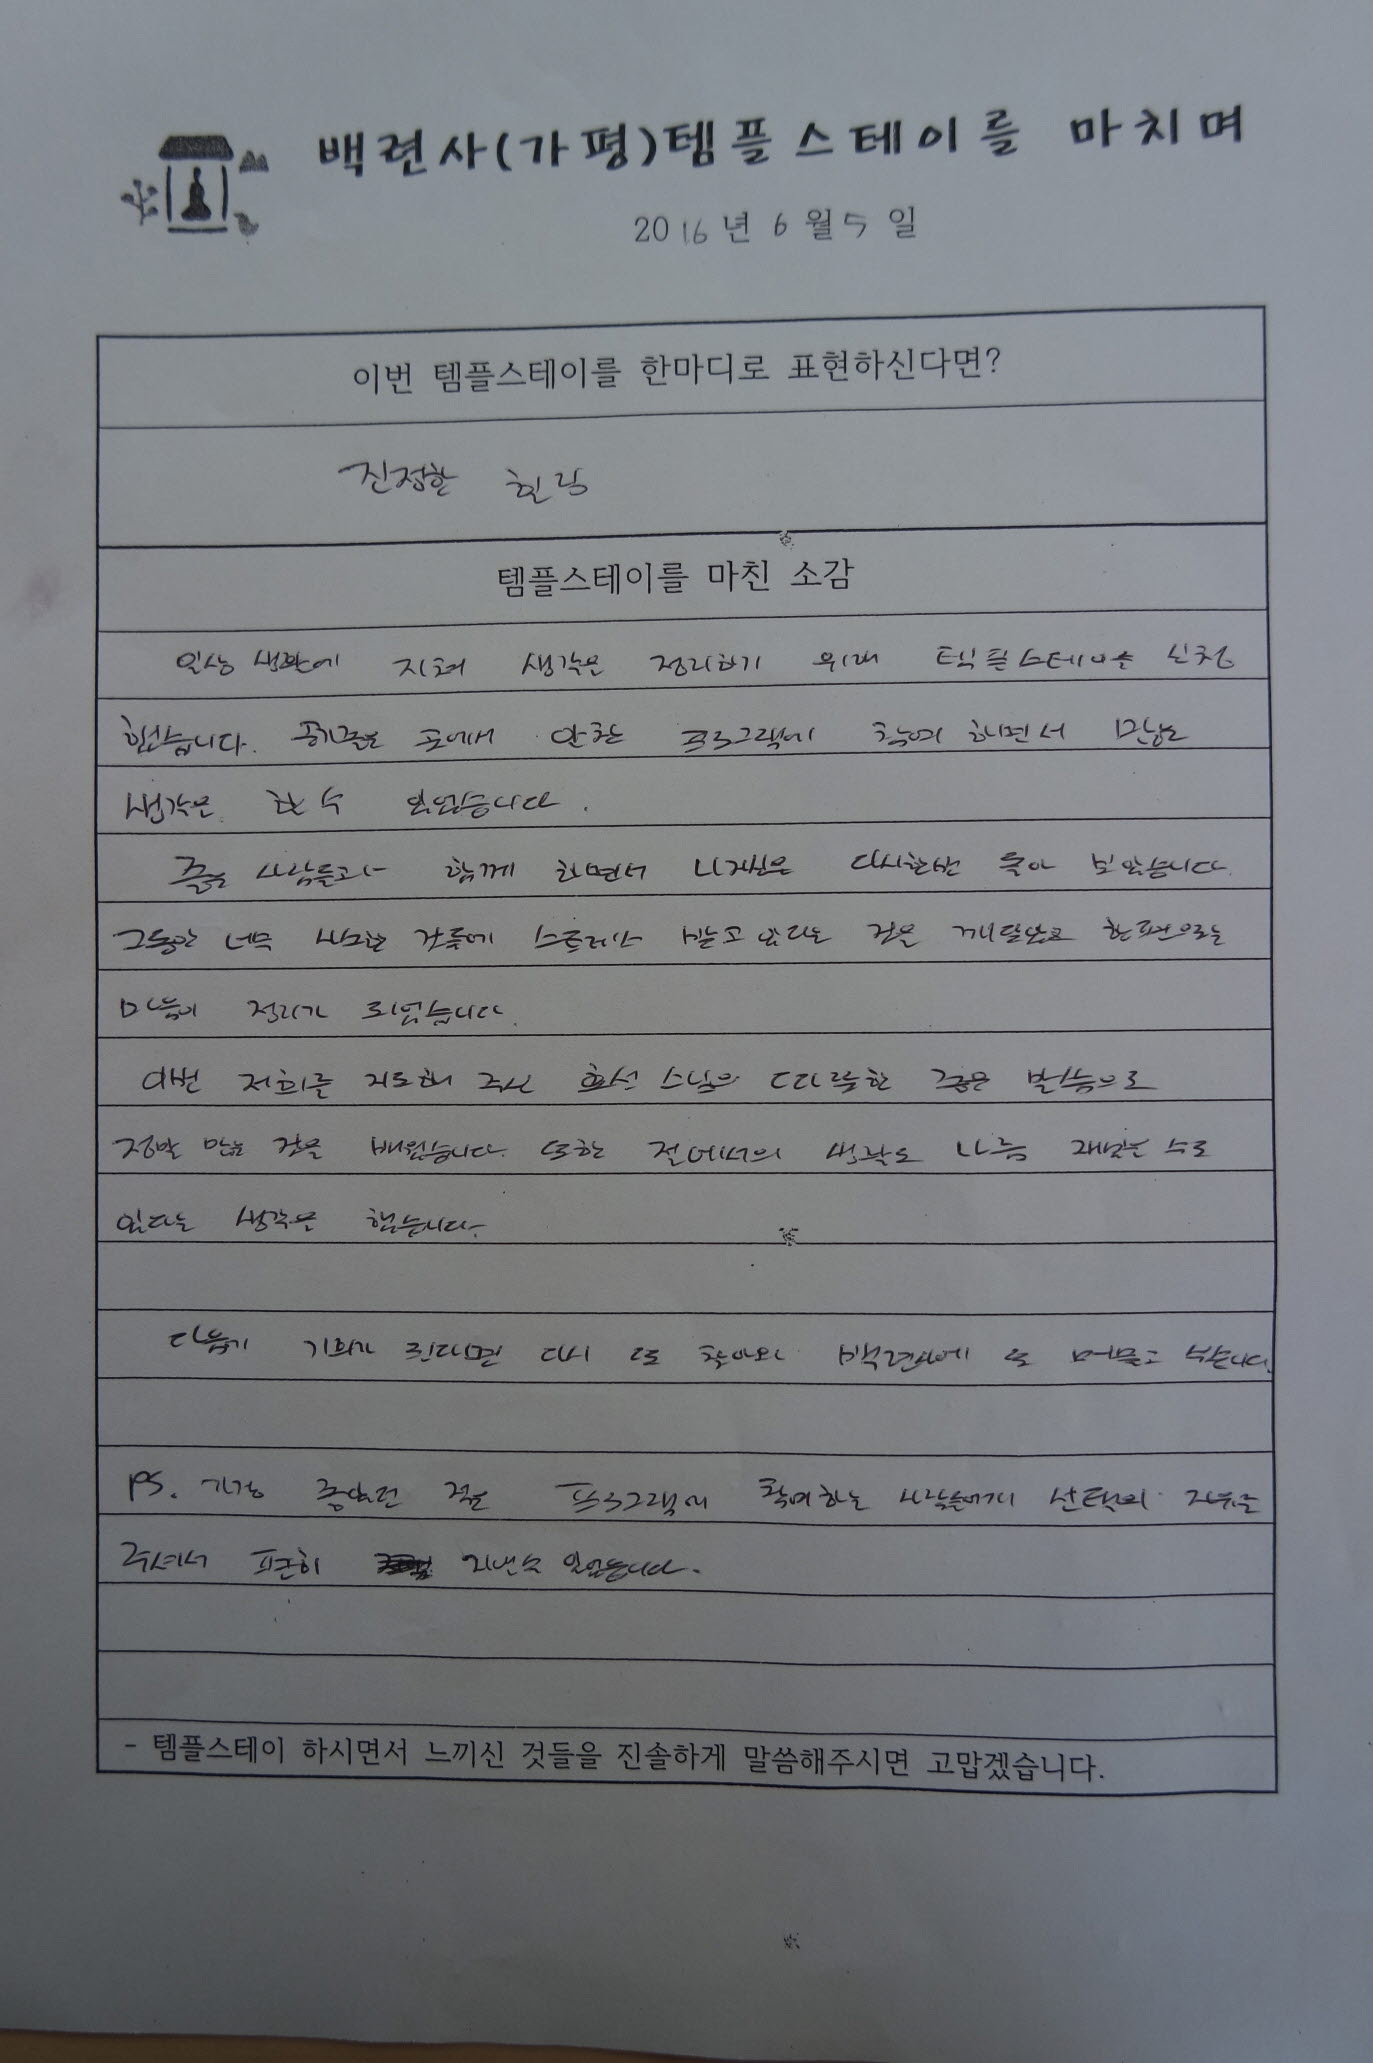 백련사(가평)템플스테이를 마치며
2016년 6월 5일
이번 템플스테이를 한마디로 표현하신다면?
진정한 힐링
템플스테이를 마친 소감
일상 생활에 지쳐 생각을 정리하기 위해 템플스테이를 신청
했습니다. 프로그램에 참여 하면서 많은
생각을 할 수 있었습니다.
좋은 사람들과 함께 하면서 나자신을 다시한번 돌아 보았습니다.
그동안 너무 사소한 것들에 스트레스 받고 있다는 것을 깨달았고 한편으로는
마음이 정리가 되었습니다.
이번 저희를 지도해 주신 스님의 따뜻한 좋은 말씀으로
정말 많은 것을 배웠습니다. 또한 절에서의 생활도 나름 재밌을 수도
있다는 생각을 했습니다.
다음에 기회가 된다면 다시 또 찾아와 백련사에 또 머물고 싶습니다.
PS. 가장 좋았던 것은 프로그램에 참여하는 사람들에게 선택의 자유를
주셔서 편히 지낼수 있었습니다.
- 템플스테이 하시면서 느끼신 것들을 진솔하게 말씀해주시면 고맙겠습니다.